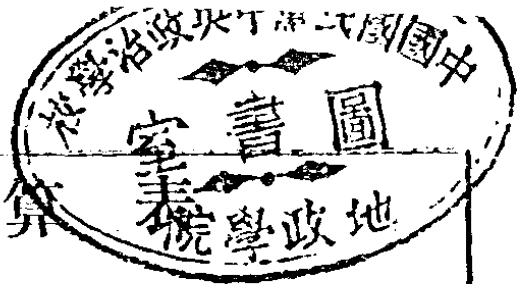 中國國民黨中央政治學校
圖書室
地政學院
算表